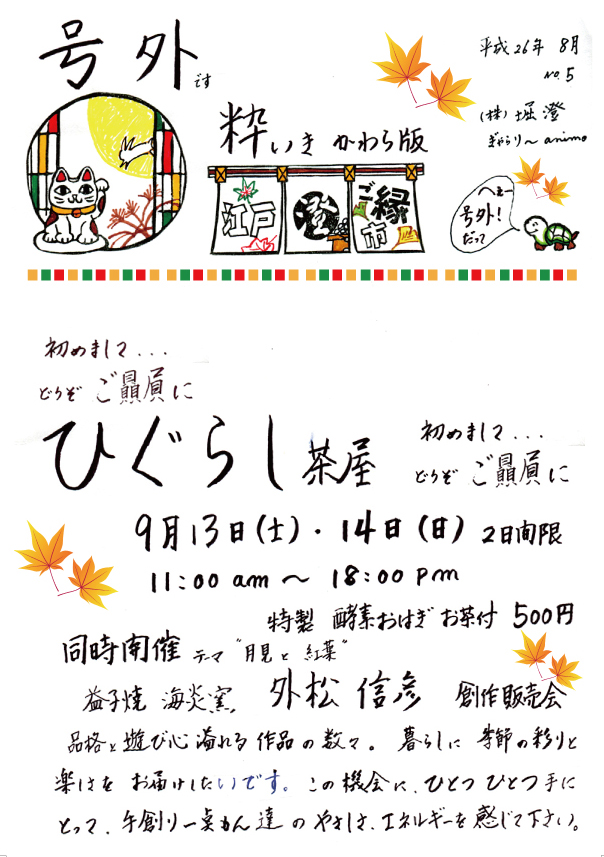 号外です
平成26年 8月
No.5
(株) 堀澄
ぎゃらりー animo
粋いき かわら版
江戸 澄 ご縁市
へぇー
号外!
だって
初めまして...
どうぞ ご贔屓に
ひぐらし茶屋
初めまして...
どうぞ ご贔屓に
9月13日(土)・14日(日) 2日間限
11:00 am 〜 18:00 pm
特製 酵素おはぎ お茶付 500円
同時開催 テーマ "月見と 紅葉"
益子焼 海炎窯, 外松 信彦 創作販売会
品格と遊び心溢れる作品の数々。暮らしに 季節の彩りと
楽しさを お届けしたいです。この機会に、ひとつひとつ手に
とって、手創り一点もん達のやさしさ、エネルギーを感じて下さい。